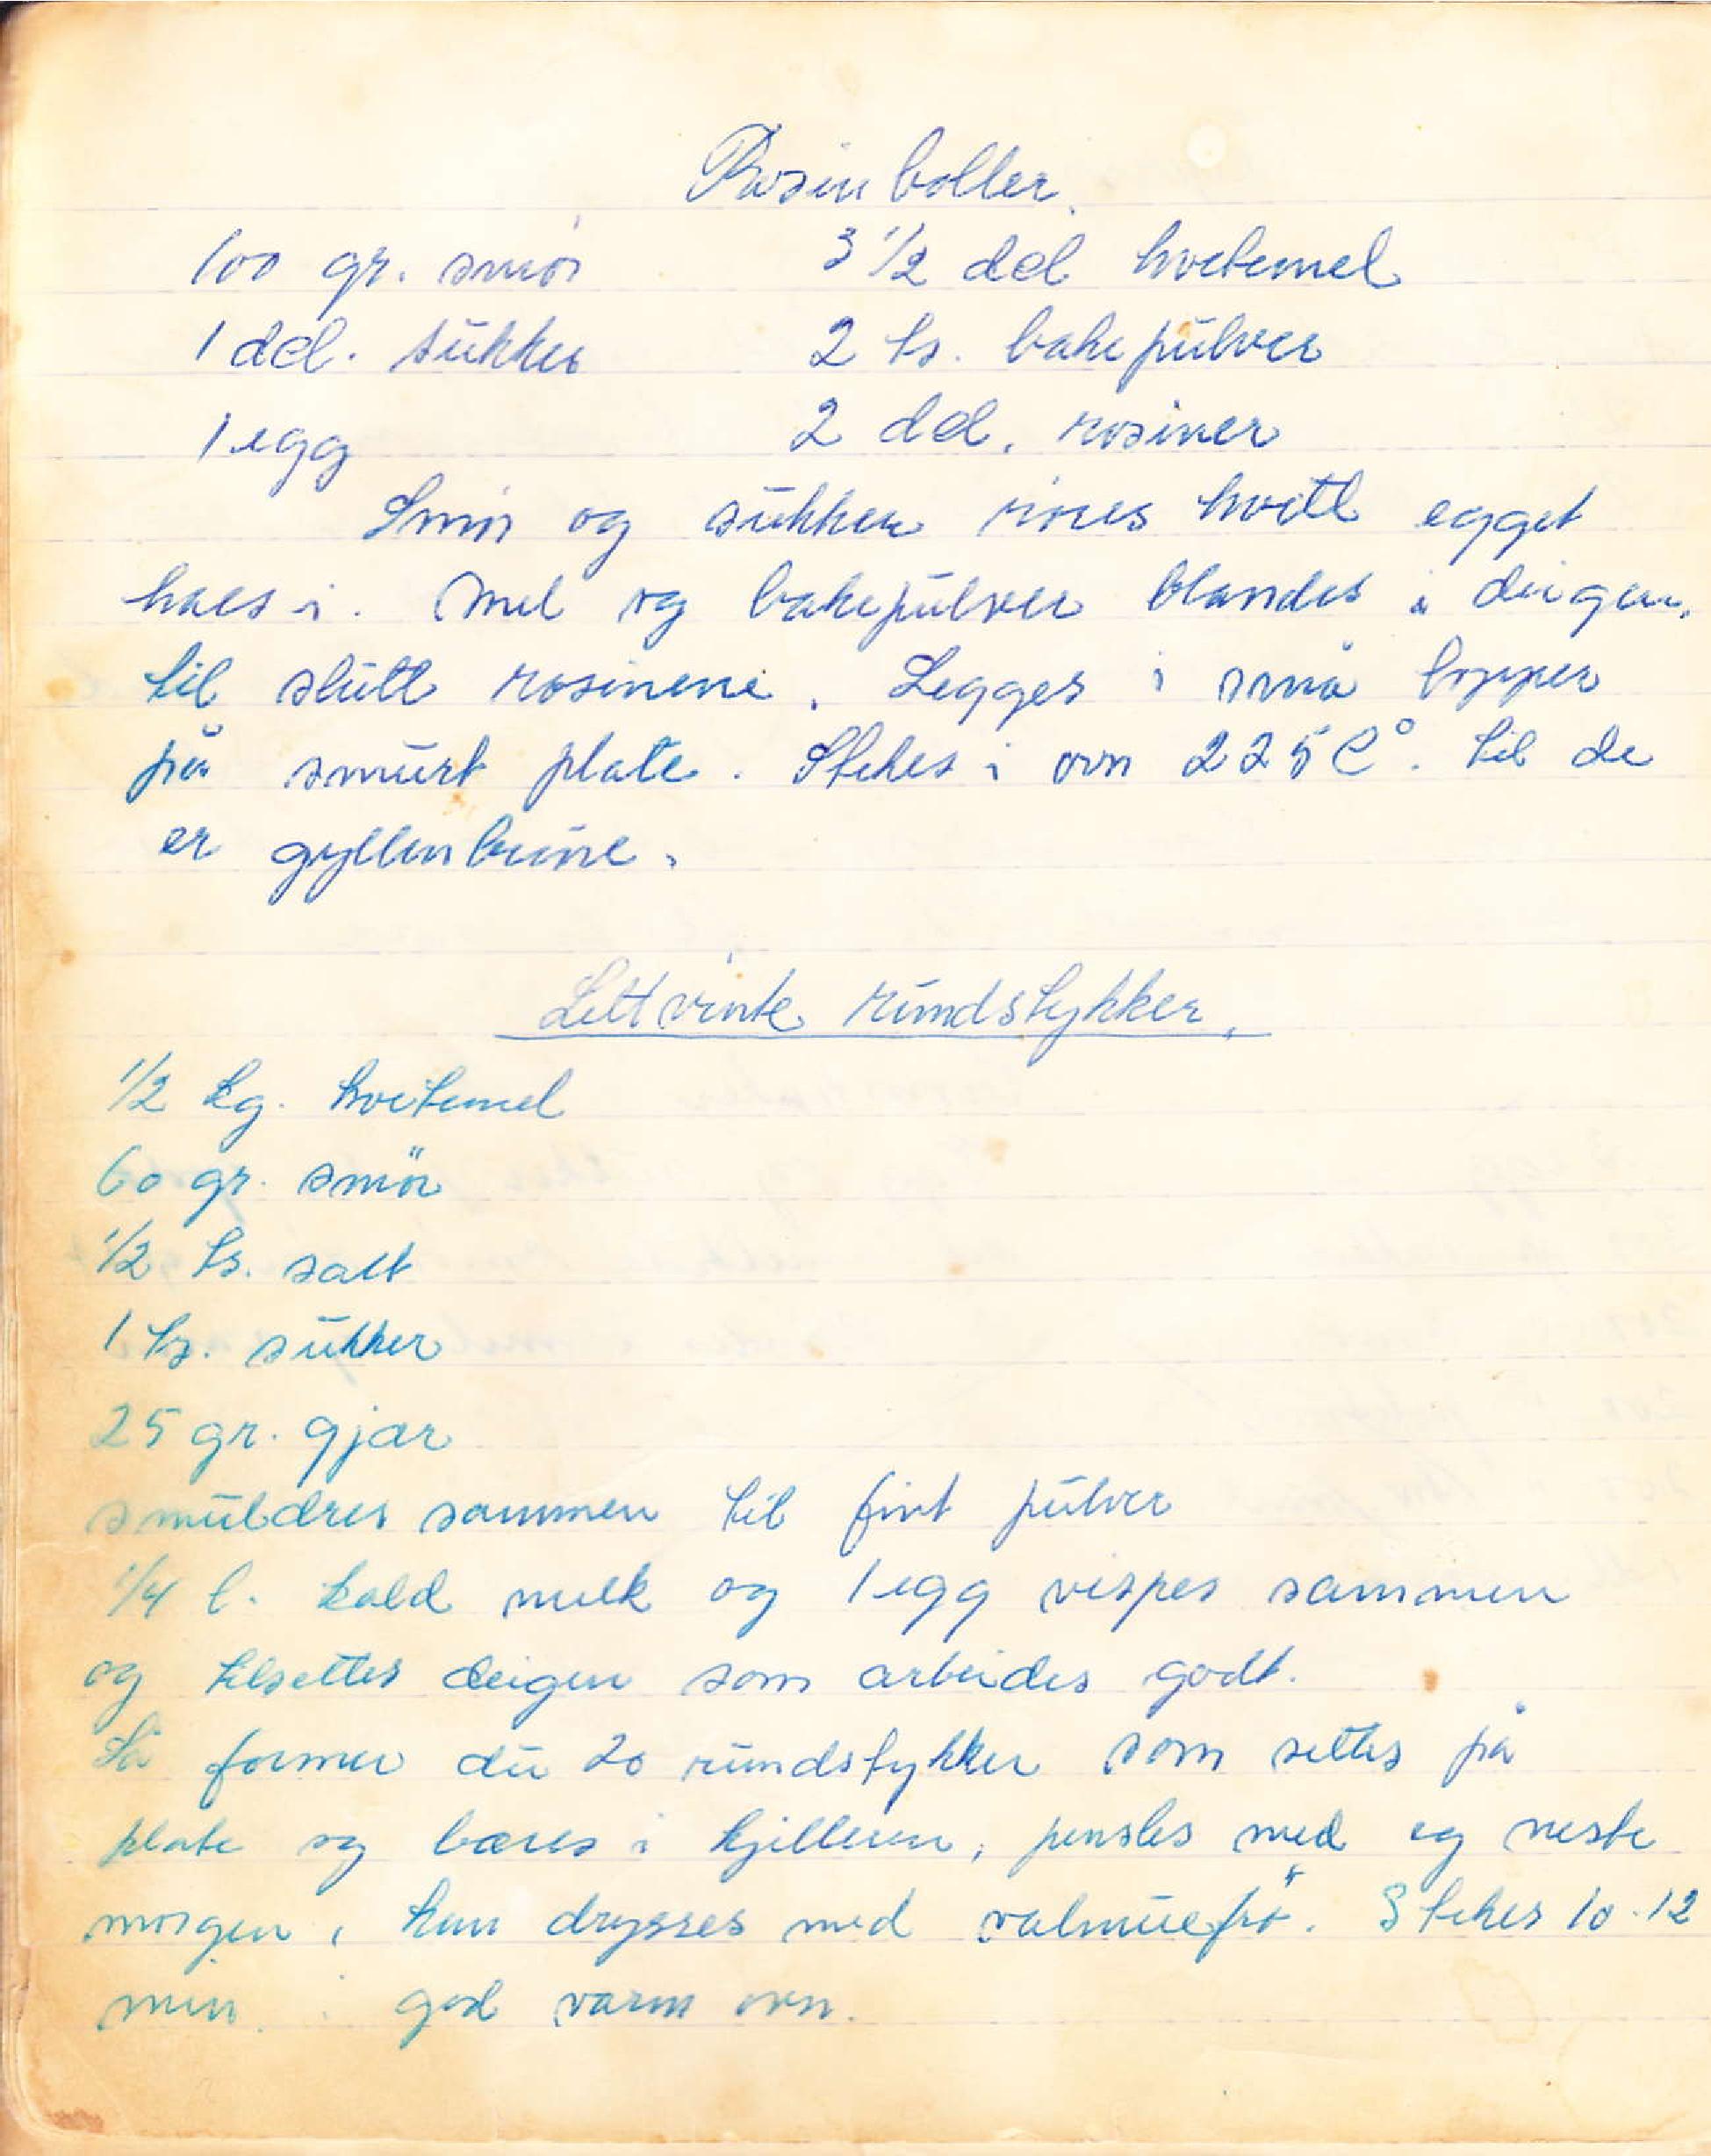 Rosinboller.
100 gr. smør 3 1/2 del hvetemel
1 del. sukker 2 ts. bakepulver
1 egg 2 del. rosiner
Smør og sukker røres hvitt egget
haes i. Mel og bakepulver blandes i deigen,
til slutt rosinene. Legges i små topper
på smurt plate. Stekes i ovn 225 C°. til de
er gyllenbrune.
Lettvinte rundstykker.
1/2 kg. hvetemel
60 gr. smör
1/2 ts. salt
1 ts. sukker
25 gr. gjær
smuldres sammen til fint pulver
1/4 l. kald melk og 1 egg vispes sammen
og tilsettes deigen som arbeides godt.
Så former du 20 rundstykker som settes på
plate og bæres i kjelleren, pensles med eg neste
morgen, kan drysses med valmuefrö. Stekes 10-12
min. i god varm ovn.